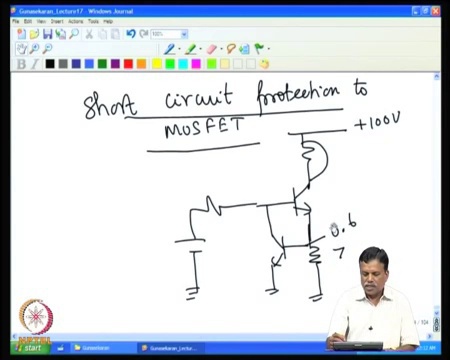 Gunasekaran_Lecture17 - Windows Journal
File Edit View Insert Actions Tools Help
100%
B I
Short circuit protection to
MOSFET
+100V
0.6
7
NPTEL
start
Gunasekaran
Gunasekaran_Lectu...